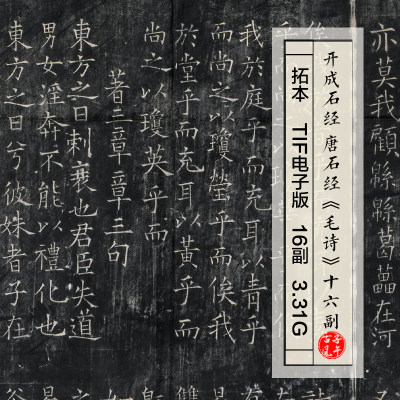 亦莫我顧緜緜葛藟在河
开成石经 唐石经《毛诗》十六副
拓本 TIF电子版 16副 3.31G
我於庭乎而充耳以青乎
而尚之以瓊瑩乎而俟我
於堂乎而充耳以黃乎而
尚之以瓊英乎而
著三章章三句
東方之日刺衰也君臣失道
男女淫奔不能以禮化也
東方之日兮彼姝者子在